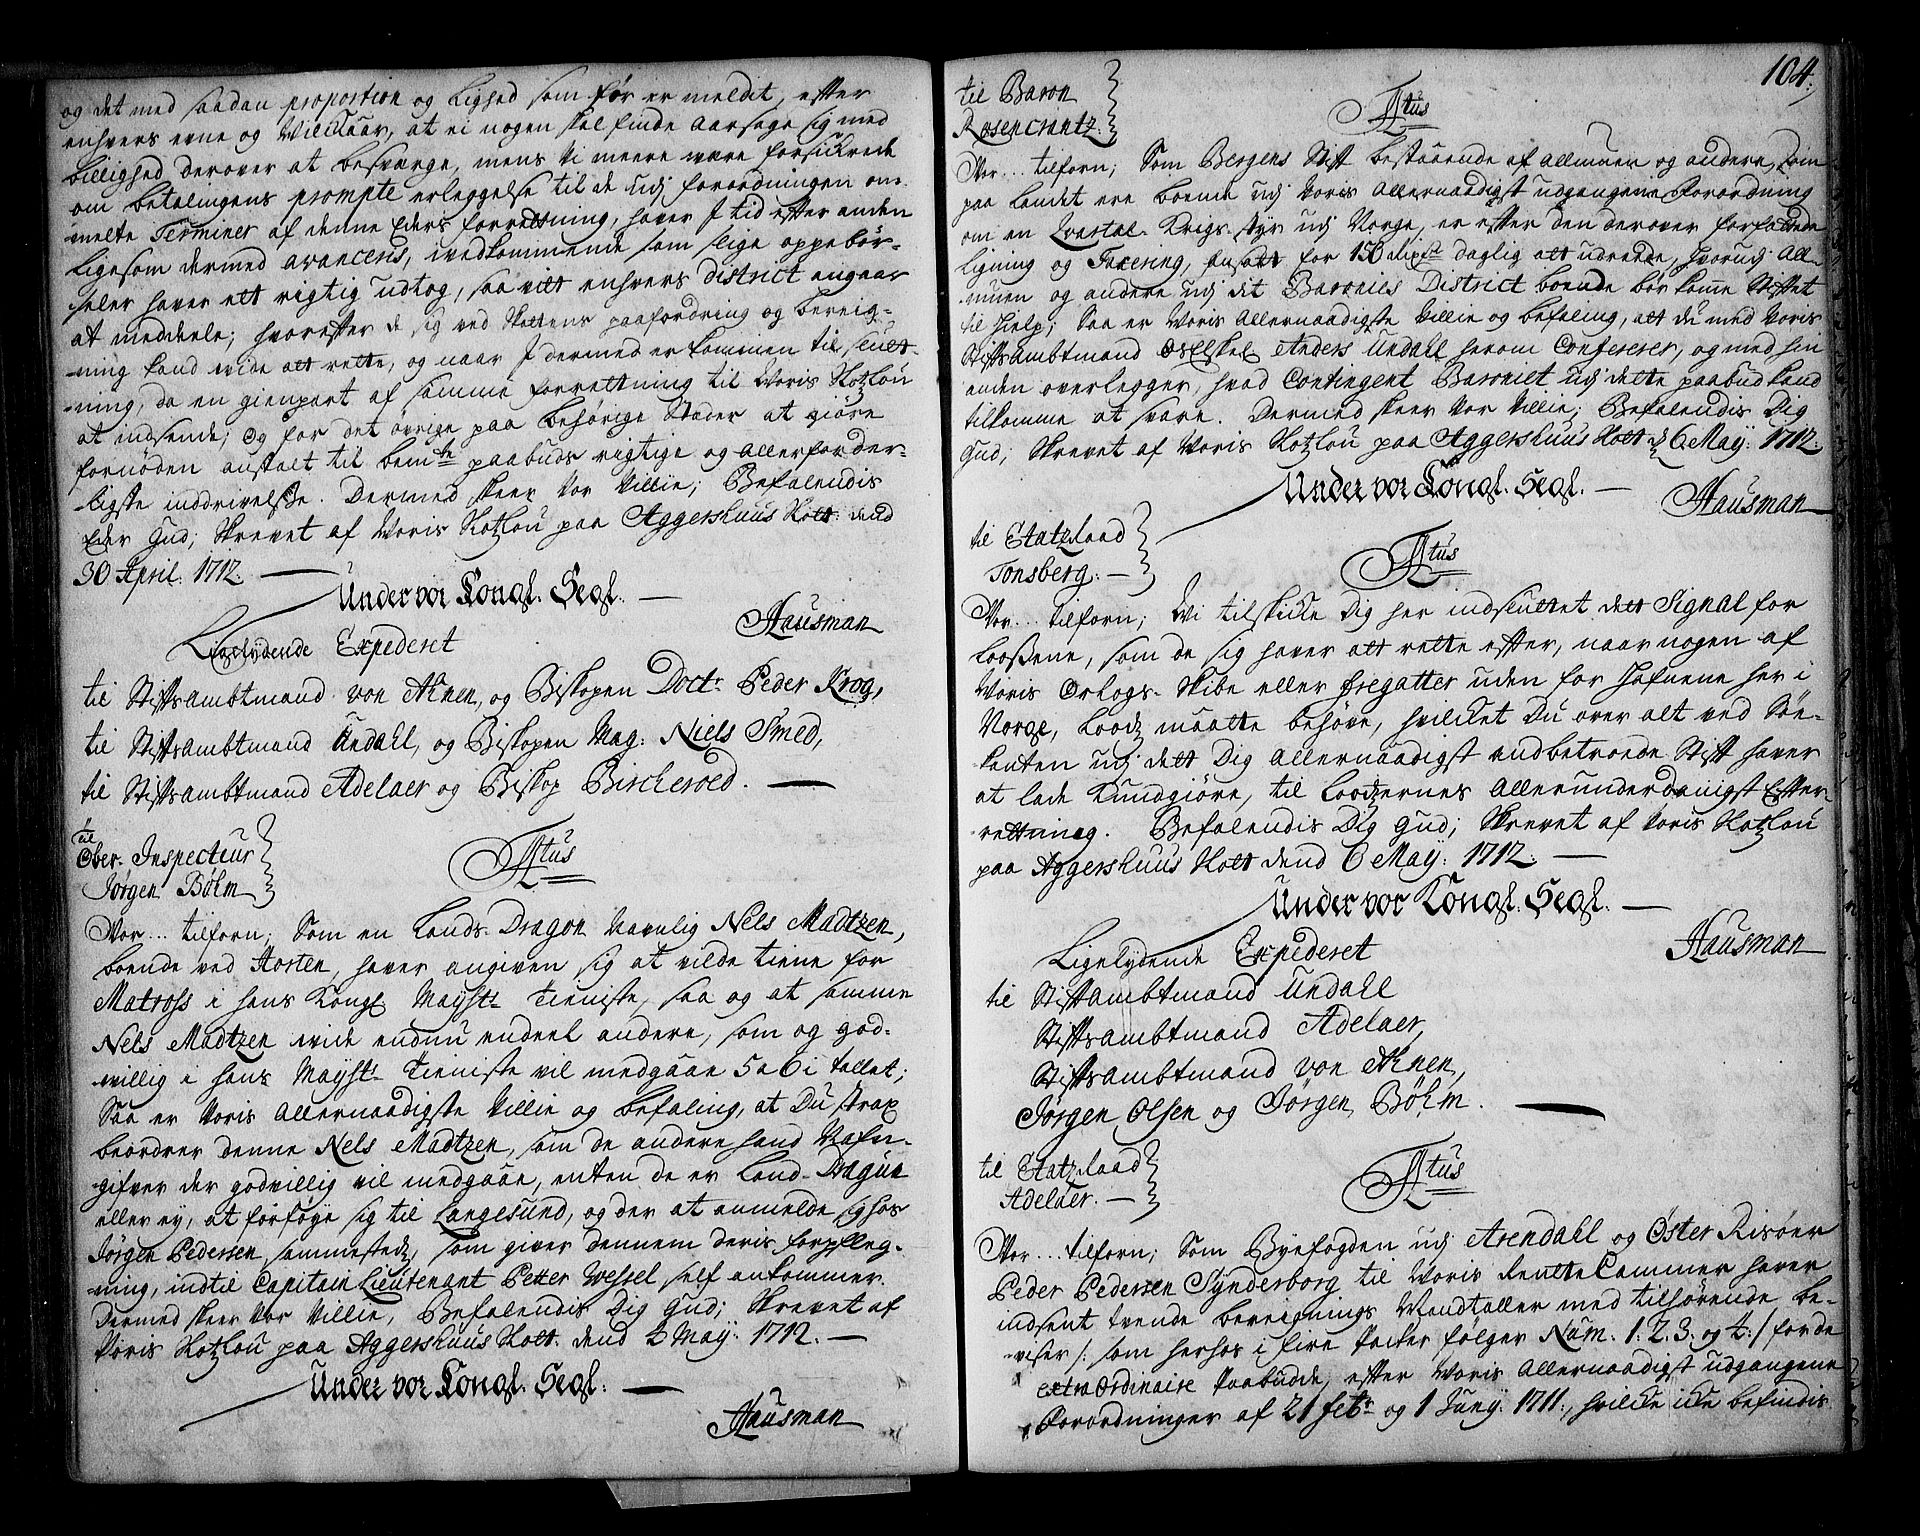 og det med saadan proportion og Lighed som før er meldit, efter
enhvers evne og Vilckaar, at ei nogen skal finde Aarsage sig med
billighed derover at besværge, mens Vi meere være forsickrede
om betalingens prompte erleggelse til de udj forordningen om-
melte Terminer af denne Eders forrettning, haver I tid efter anden
ligesom dermed avanceris, wedkommende som slige oppebør-
seler haver ett rigtig udtog, saa vitt enhvers district angaar
at meddeele; hvorefter de sig ved Skattens paafordring og bereig-
ning kand wide att rette, og naar I dermed er kommen til slutt-
ning, da en gienpart af samme forrettning til Voris Slotzlou
at indsende; Og for det øvrige paa behørige Stæder at giøre
fornøden anstalt til bemte paabuds rigtige og allerforder-
ligste inddrivelse. Dermed skeer Vor Villie; Befalendis
Eder Gud; Skrevet af Voris Slotzlou paa Aggershuus Slott dend
30 April: 1712.
Under vor Kongl. Segl.
Hausman
Ligelydende Expederet
til Stiftsambtmand von Ahnen, og Biskopen Doctr Peder Krog,
til Stiftsambtmand Undahl, og Biskopen Mag: Niels Smed,
til Stiftsambtmand Adelaer og Biskop Bircheroed.
til
Ober-Inspecteur
Jørgen Bøhm
Atus
Vor... tilforn; Som en Lands-Dragon Navnlig Nels Madtzen,
boende ved Horten, haver angiven sig at vilde tiene for
Matross i hans Kongl Maysts Tieniste, saa og at samme
Nels Madtzen wide endnu endeel andere, som og god-
willig i hans Maysts Tieniste vil medgaae 5 a 6 i tallet;
Saa er Voris allernaadigste Villie og befaling, at Du strax
beordrer denne Nels Madtzen, som de andere hand Nafn-
gifver der godvillig vil medgaae, enten de er Land-Dragun
eller ey, at forføye sig til Langesund, og der at anmelde sig hos
Jørgen Pedersen sammestedz, som giver dennem deris forpfleg-
ning, indtil Capitain Lieutenant Petter Wessel self ankommer.
Dermed skeer Vor Villie, Befalendis Dig Gud; Skrevet af
Voris Slotzlou paa Aggershuus Slott dend 2 May: 1712.
Under vor Kongl. Segl:
Hausman
104.
til Baron
Rosencrantz.
Atus
Vor... tilforn; Som Bergens Stift bestaaende af allmuen og andere, som
paa landet ere boende udj Voris allernaadigst udgangene Forordning
om en Qvartal-Krigs-Styr udj Norge, er efter den derover forfattede
ligning og Taxering, ansatt for 150 daglig att udrede, hvorudj All-
muen og andere udj det Baronies District boende bør komme Stiftet
til Hielp; Saa er Voris allernaadigste Villie og befaling, att du med Voris
Stiftsambtmand Os Elskel. Anders Undahl herom Confererer, og med hin
anden overlegger, hvad Contingent Baroniet udj dette paabud kand
tilkomme at svare. Dermed skeer Vor Villie; Befalendis Dig
Gud; Skrevet af Voris Slotzlou paa Aggershuus Slott d 6 May: 1712.
Under vor Kongl. Segl.
Hausman
til Etatzraad
Tonsberg.
Atus
Vor... tilforn; Vi tilskicke Dig her indsluttet dett Signal for
Loossene, som de sig haver att rette efter, naar nogen af
Voris Orlogs-Skibe eller fregatter uden for Hafnene her i
Norge, Loodz maatte behøve, hvilcket Du over alt ved Søe-
kanten udj dett Dig allernaadigst andbetroede Stift haver
at lade kundgiøre, til Loodzernes allerunderdanigst Efter-
rettning. Befalendis Dig Gud; Skrevet af Voris Slotzlou
paa Aggershuus Slott dend 6 May: 1712.
Under vor Kongl. Segl.
Hausman
Ligelydende Expederet
til Stiftambtmand Undahl
Stiftsambtmand Adelaer,
Stiftsambtmand von Ahnen,
Jørgen Olsen og Jørgen Bøhm.
til Etatzraad
Adelaer.
Atus
Vor... tilforn; Som Byefogden udj Arendahl og Øster Riisøer
Peder Pedersen Synderborg til Voris RenteCammer haver
indsent trende beregnings Mandtaller med tilhørende be-
viser /: som herhos i fire Packer følger Num. 1. 2. 3. og 4 :/ for de
extraOrdinaire Paabudde, efter Voris allernaadigst udgangene
Forordninger af 21 febr og 1 Juny 1711, hvilcke icke befindis